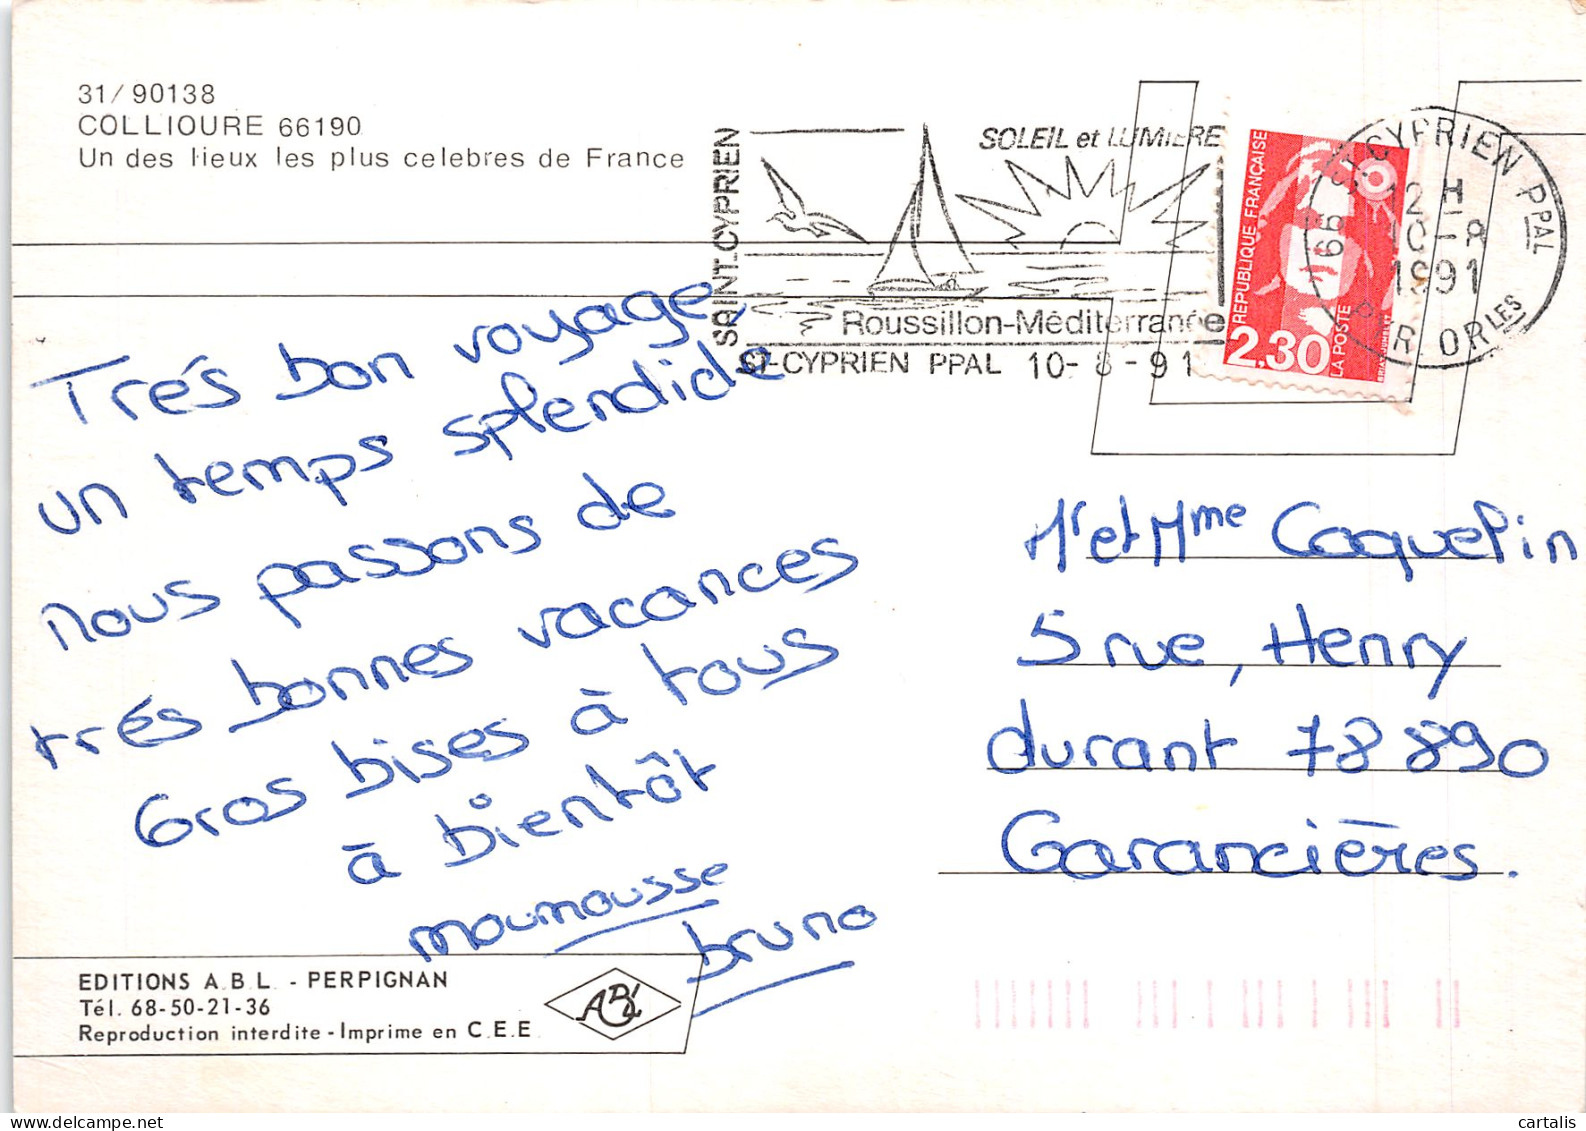 31/90138
COLLIOURE 66190
Un des lieux les plus celebres de France
SAINT-CYPRIEN
SOLEIL et LUMIERE
Roussillon-Méditerranée
ST-CYPRIEN PPAL 10-8-91
REPUBLIQUE FRANÇAISE
2,30
LA POSTE
66 ST CYPRIEN PPAL
12 H
10-8
1991
PYR. ORLES
Trés bon voyage,
un temps splendide
nous passons de
trés bonnes vacances
Gros bises à tous
à bientôt
moumousse
bruno
Mr et Mme Coquelin
5 rue, Henry
durant 78890
Garancières.
EDITIONS A.B.L. - PERPIGNAN
Tél. 68-50-21-36
Reproduction interdite - Imprime en C.E.E.
ABL
cartalis